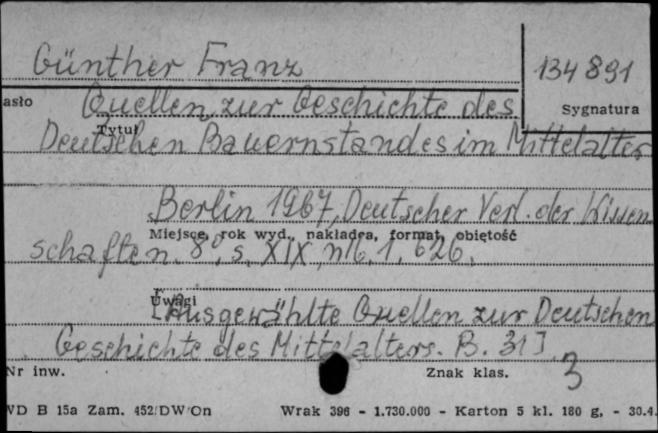 Günther Franz
134 891
asło
Quellen zur Geschichte des
Sygnatura
Tytuł
Deutschen Bauernstandes im Mittelalter
Berlin 1967, Deutscher Verl. der Wissen
Miejsce, rok wyd., nakładca, format, objętość
schaften. 8°, s. XIX, nlb. 1, 626.
Uwagi
[Ausgewählte Quellen zur Deutschen
Geschichte des Mittelalters. B. 31]
Nr inw.
Znak klas.
3
WD B 15a Zam. 452/DW/On
Wrak 396 - 1.730.000 - Karton 5 kl. 180 g. - 30.4.